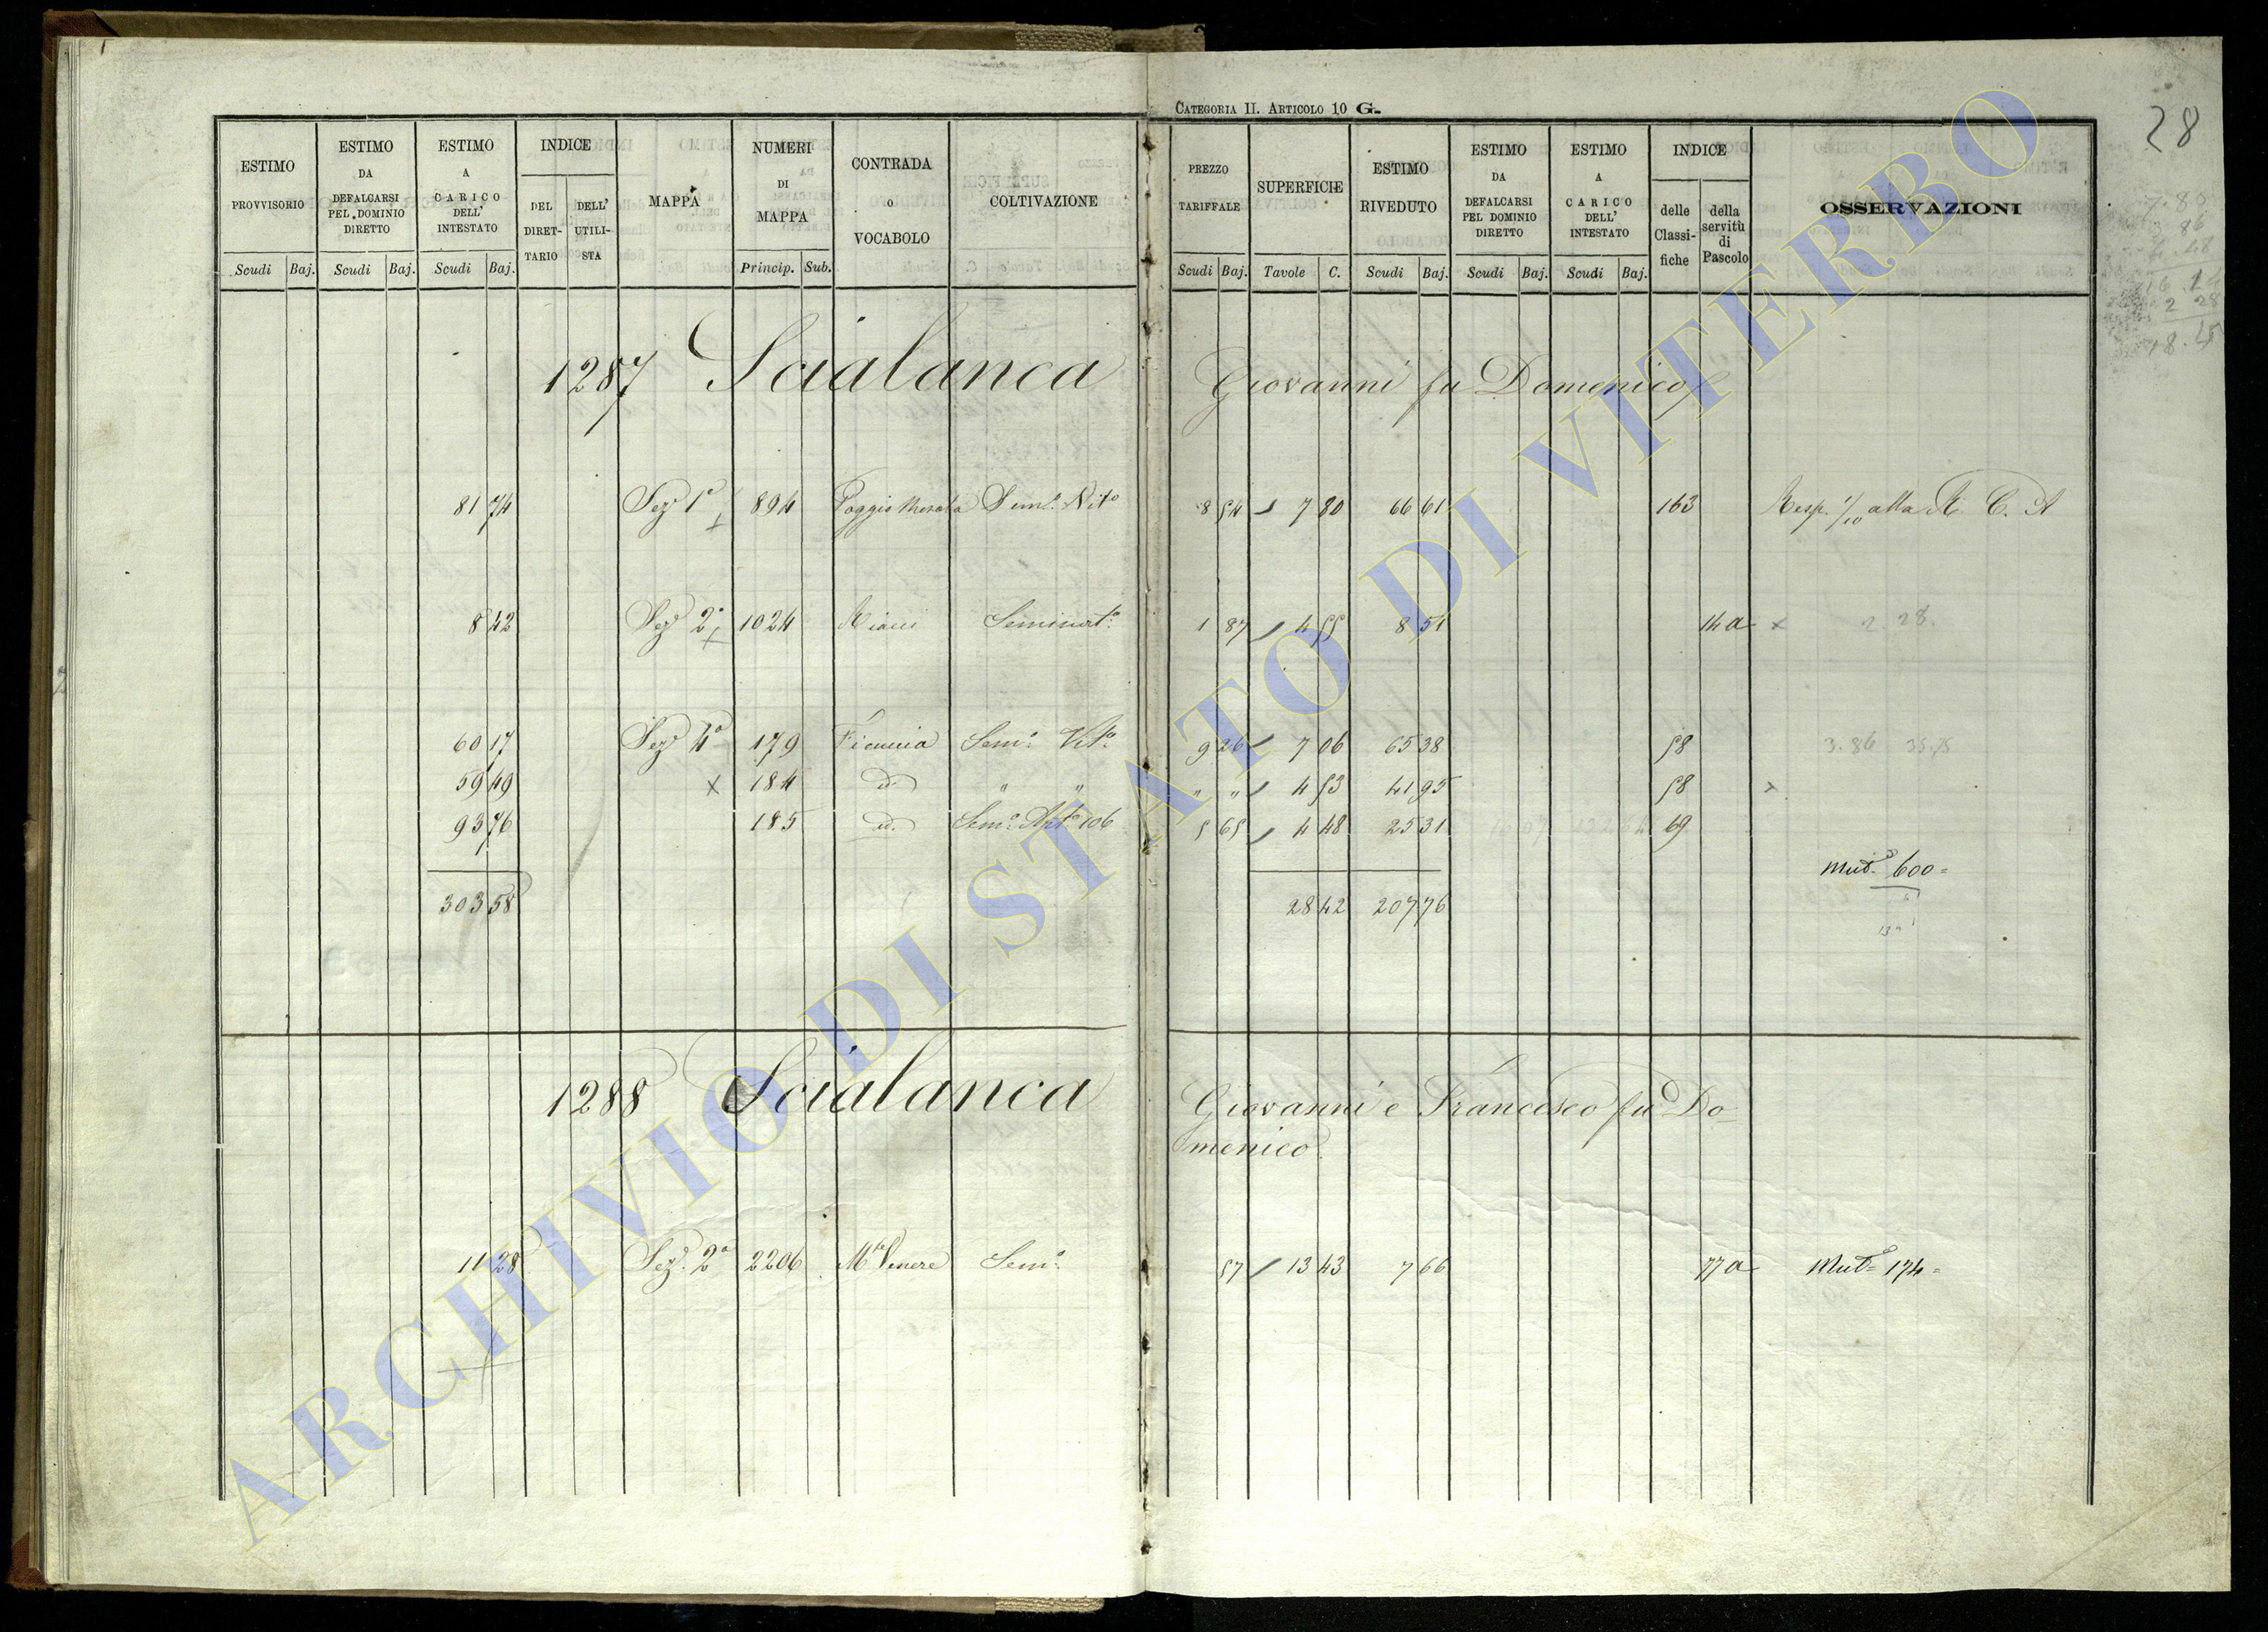 CATEGORIA II. ARTICOLO 10 G.
28
ESTIMO PROVVISORIO
ESTIMO DA DEFALCARSI PEL DOMINIO DIRETTO
ESTIMO A CARICO DELL' INTESTATO
INDICE
DEL DIRET-TARIO
DELL' UTILI-STA
MAPPA
NUMERI DI MAPPA
CONTRADA O VOCABOLO
COLTIVAZIONE
PREZZO TARIFFALE
SUPERFICIE
ESTIMO RIVEDUTO
ESTIMO DA DEFALCARSI PEL DOMINIO DIRETTO
ESTIMO A CARICO DELL' INTESTATO
INDICE
delle Classi-fiche
della servitù di Pascolo
OSSERVAZIONI
Scudi Baj. Scudi Baj. Scudi Baj. Princip. Sub. Scudi Baj. Tavole C. Scudi Baj. Scudi Baj. Scudi Baj.
1287 Scialanca Giovanni fu Domenico
81 74 Sez. 1a 894 Sem.o Vit.o 8 54 7 80 66 61 163 Resp. 1/10 alla R. C. A
8 42 Sez. 2a 1024 Seminat.o 1 87 4 55 8 51 14 a x 2. 28.
60 17 Sez. 4a 179 Ficuccia Sem.o Vit.o 9 26 7 06 65 38 58 3.86
59 49 x 184 id. " " " " 4 53 41 95 58
93 76 185 id. Sem.o 106 5 65 4 48 25 31 69
Mut.e 600=
303 58 28 42 207 76
1288 Scialanca Giovanni e Francesco fu Do-
menico
11 28 Sez. 2a 2206 M.te Venere Sem.o 57 13 43 7 66 77 a Mut.e 174=
ARCHIVIO DI STATO DI VITERBO